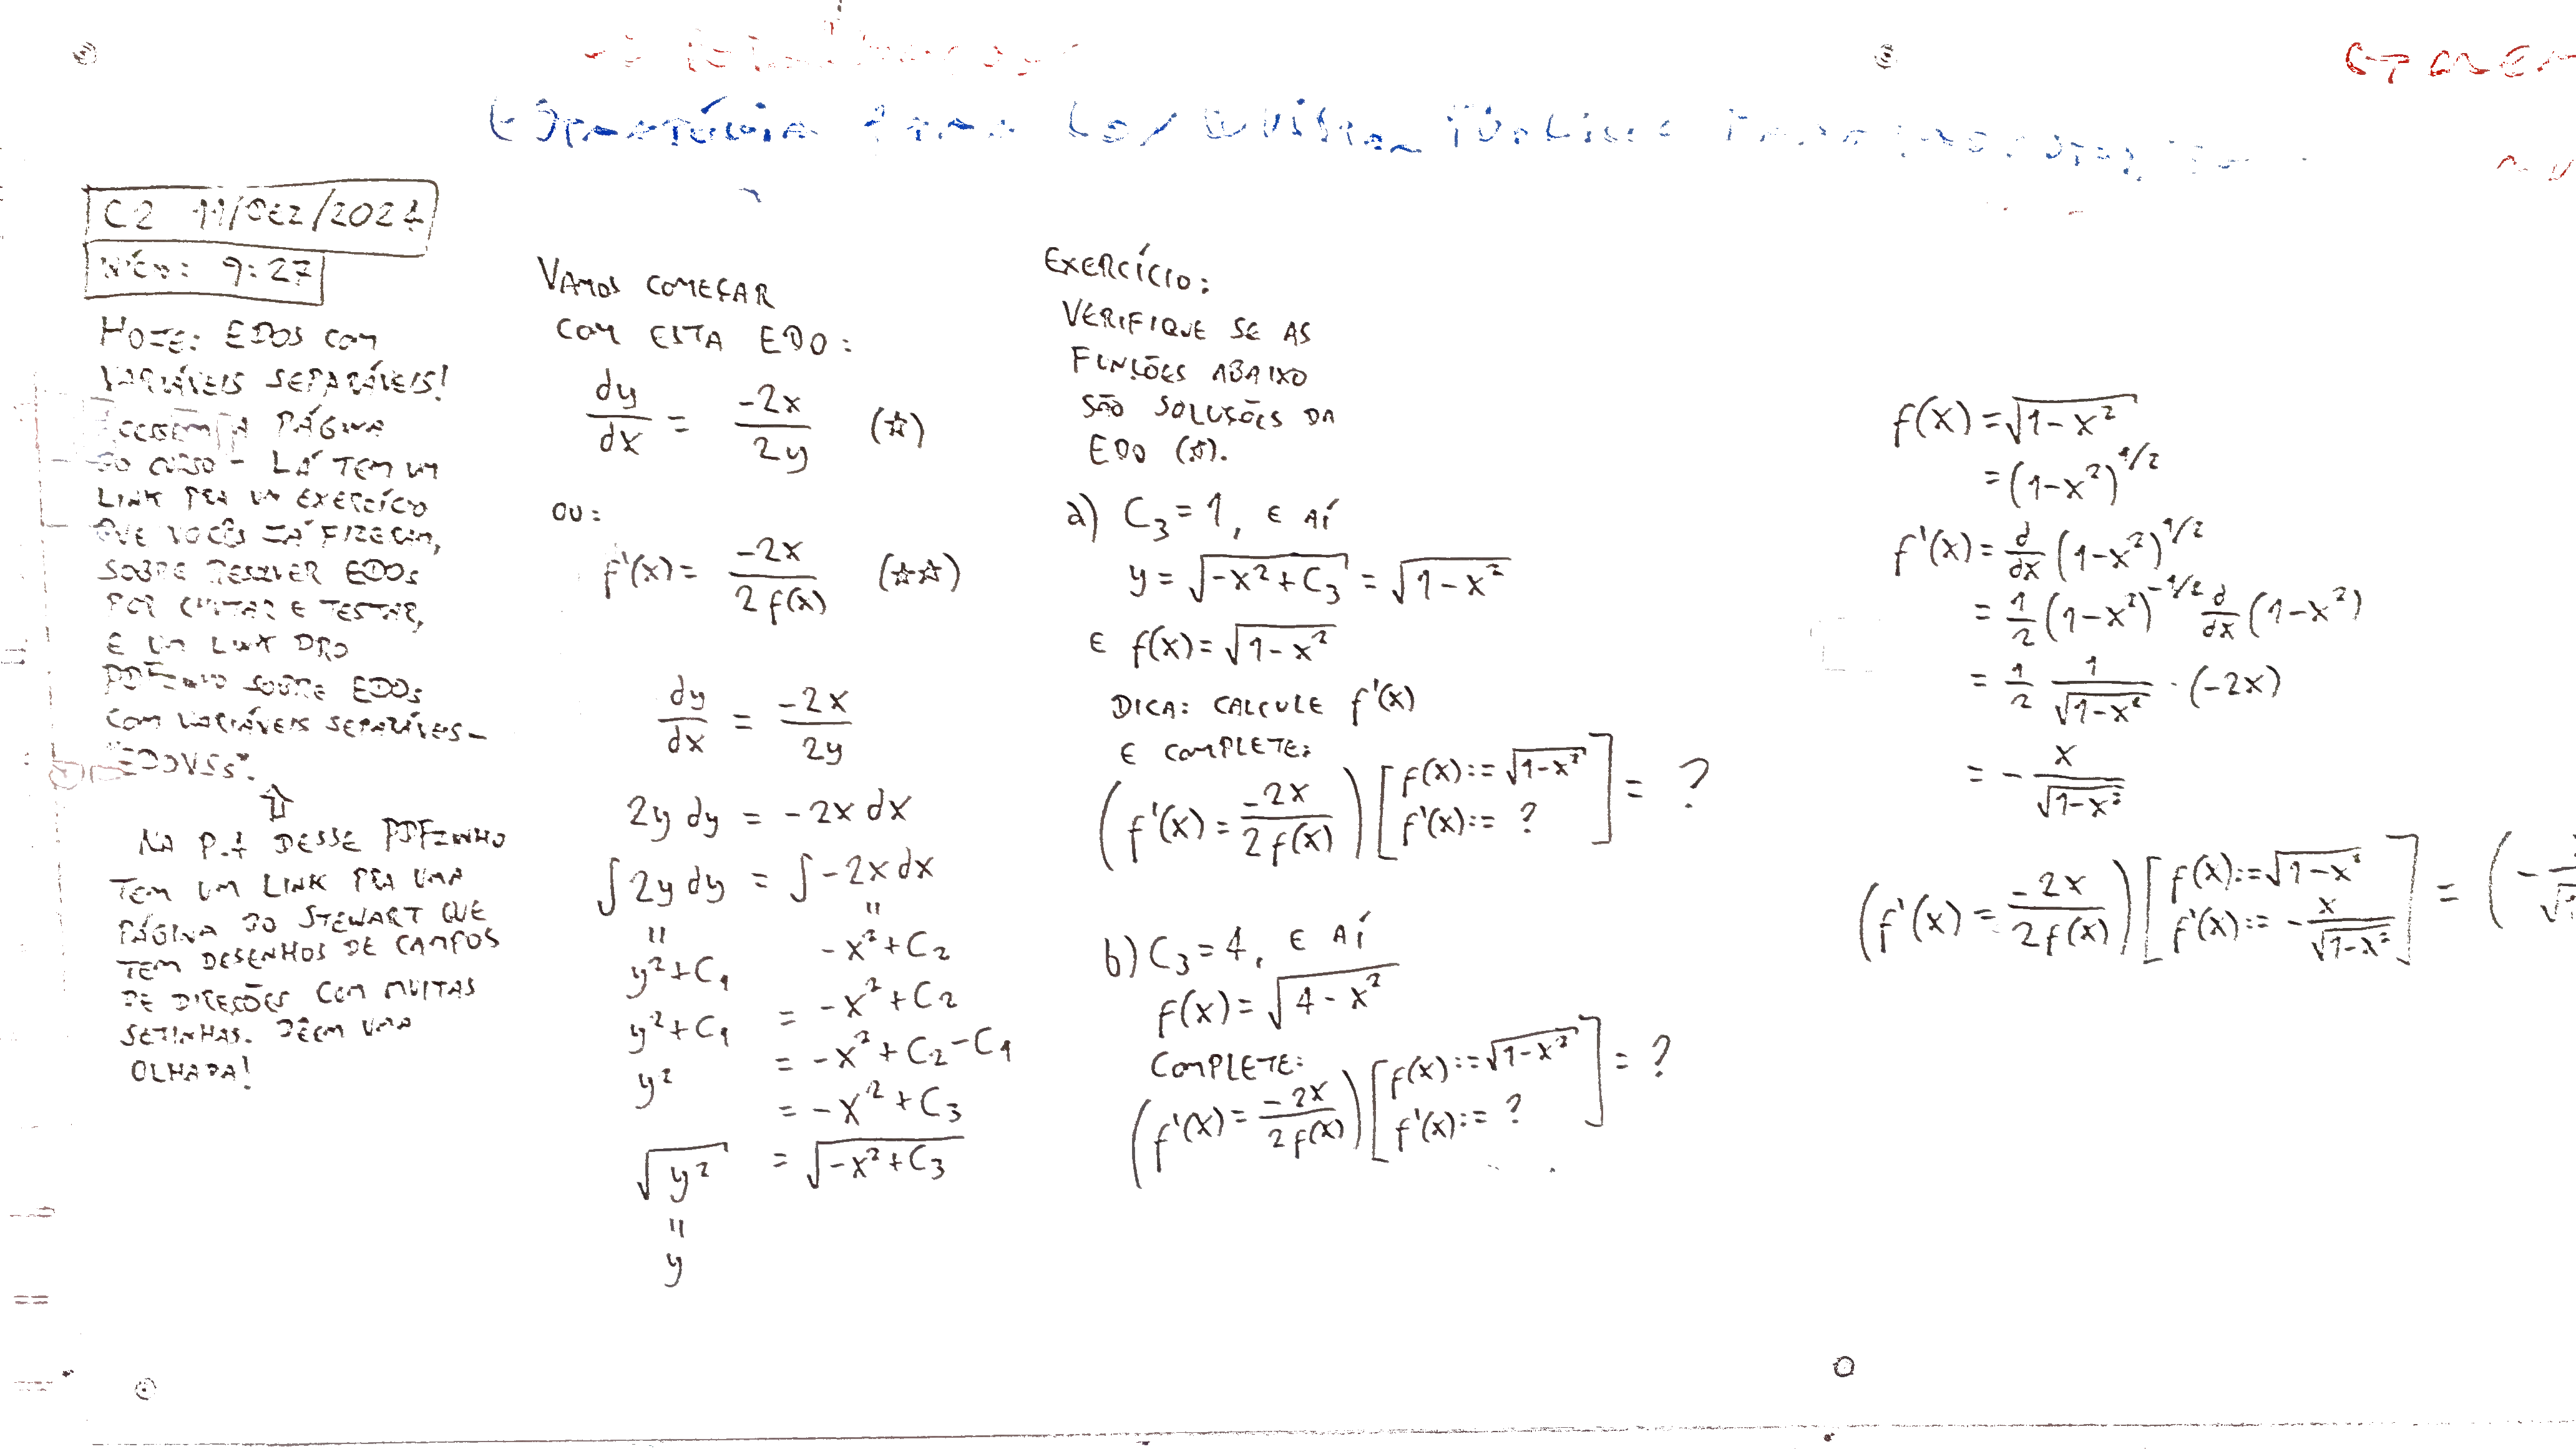 C2 11/DEZ/2024
9:27
HOJE: EDOS COM
VARIÁVEIS SEPARÁVEIS!
ACESSEM A PÁGINA
DO CURSO - LÁ TEM UM
LINK PRA UM EXERCÍCIO
QUE VOCÊS JÁ FIZERAM,
SOBRE RESOLVER EDOs
POR CHUTAR E TESTAR,
E UM LINK PRO
PDFZINHO SOBRE EDOs
COM VARIÁVEIS SEPARÁVEIS -
"EDOVSs".
⇧
NA P.4 DESSE PDFZINHO
TEM UM LINK PRA UMA
PÁGINA DO STEWART QUE
TEM DESENHOS DE CAMPOS
DE DIREÇÕES COM MUITAS
SETINHAS. DÊEM UMA
OLHADA!
VAMOS COMEÇAR
COM ESTA EDO:
dy/dx = -2x/2y (☆)
OU:
f'(x) = -2x/2f(x) (☆☆)
dy/dx = -2x/2y
2y dy = -2x dx
∫ 2y dy = ∫ -2x dx
" "
y² + C₁ -x² + C₂
y² + C₁ = -x² + C₂
y² = -x² + C₂ - C₁
= -x² + C₃
√y² = √-x² + C₃
"
y
EXERCÍCIO:
VERIFIQUE SE AS
FUNÇÕES ABAIXO
SÃO SOLUSÕES DA
EDO (☆).
a) C₃ = 1, E AÍ
y = √-x² + C₃ = √1-x²
E f(x) = √1-x²
DICA: CALCULE f'(x)
E COMPLETE:
(f'(x) = -2x/2f(x)) [f(x) := √1-x²
f'(x) := ?] = ?
b) C₃ = 4, E AÍ
f(x) = √4-x²
COMPLETE:
(f'(x) = -2x/2f(x)) [f(x) := √1-x²
f'(x) := ?] = ?
f(x) = √1-x²
= (1-x²)^1/2
f'(x) = d/dx (1-x²)^1/2
= 1/2 (1-x²)^-1/2 d/dx (1-x²)
= 1/2 1/√1-x² · (-2x)
= - x/√1-x²
(f'(x) = -2x/2f(x)) [f(x) := √1-x²
f'(x) := - x/√1-x²] = (-